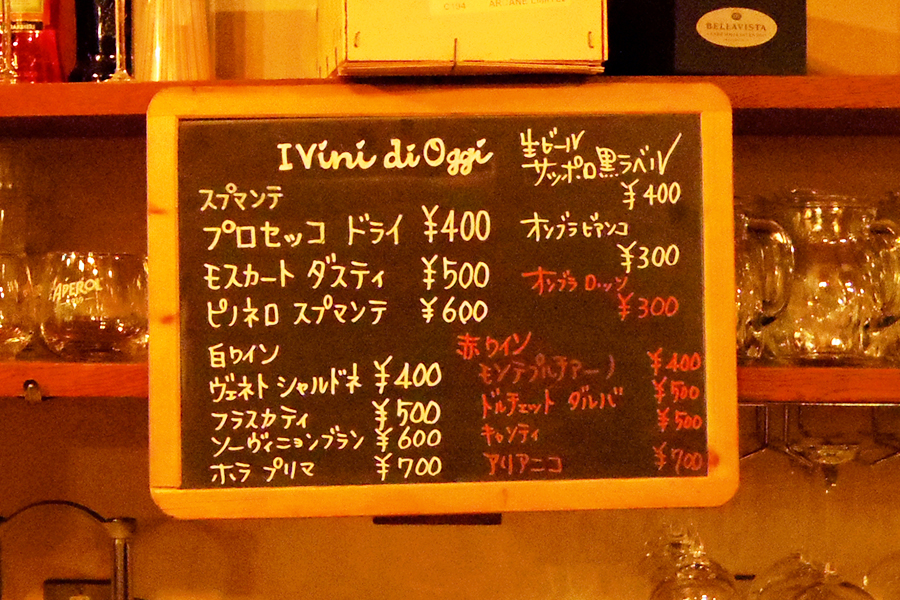 BELLAVISTA
APEROL
I Vini di Oggi
スプマンテ
プロセッコ ドライ ¥400
モスカート ダスティ ¥500
ピノネロ スプマンテ ¥600
白ワイン
ヴェネト シャルドネ ¥400
フラスカティ ¥500
ソーヴィニョンブラン ¥600
ホラ プリマ ¥700
生ビール
サッポロ黒ラベル
¥400
オンブラ ビアンコ
¥300
オンブラ ロッソ
¥300
赤ワイン
モンテプルチアーノ ¥400
ドルチェット ダルバ ¥500
キャンティ ¥500
アリアニコ ¥700